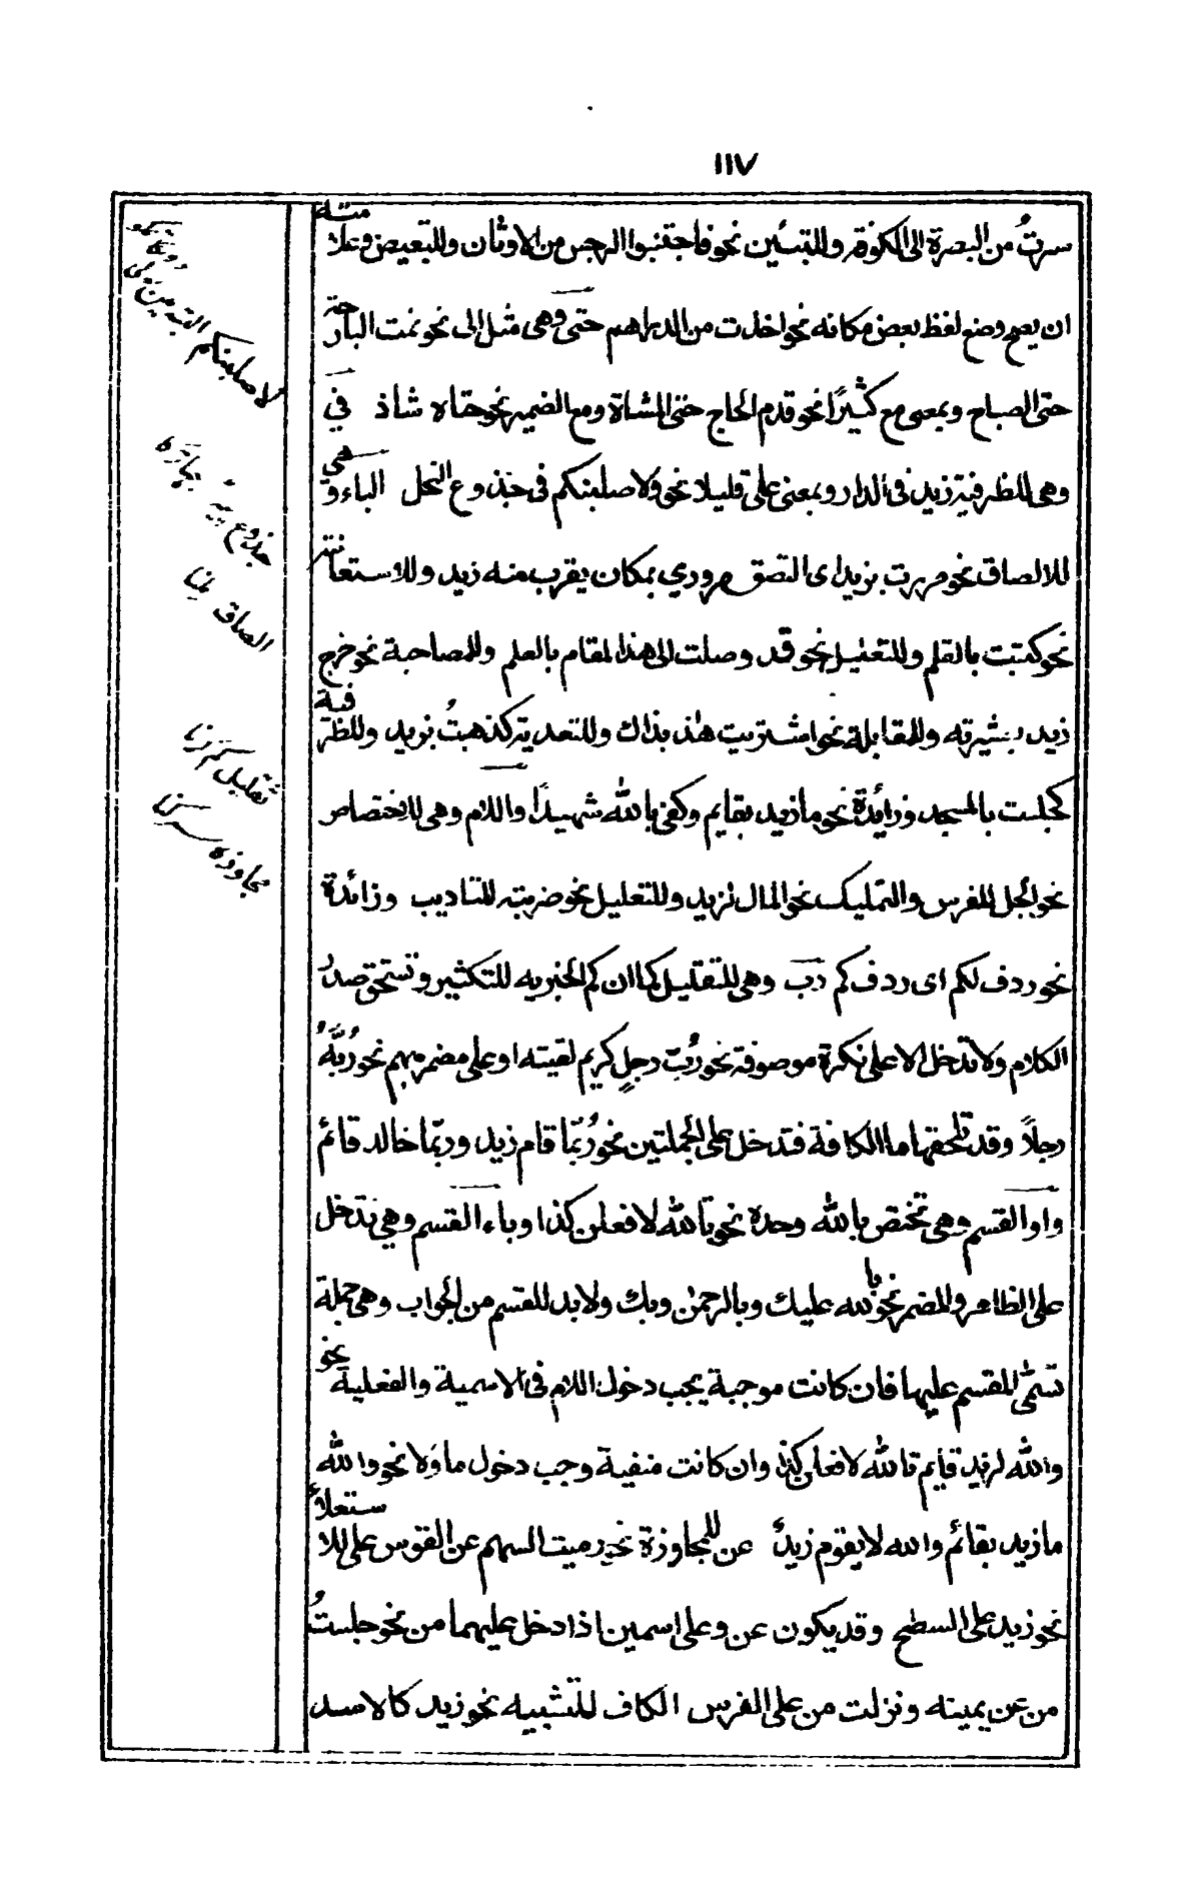 ١١٧
سرتُ من البصرة الى الكوفة وللتبئين نحو فاجتنبوا الرجس من الاوثان وللتبعيض وعلامته
ان يصح وضع لفظ بعض مكانه نحو اخذت من الدراهم حتى وهى مثل الى نحو نمت البارحة
حتى الصباح وبمعنى مع كثيرًا نحو قدم الحاج حتى المشاة ومع الضمير نحو حتاه شاذ فى
وهى للظرفية زيد فى الدار وبمعنى على قليلا نحو ولاصلبنكم فى جذوع النخل الباء وهى
للالصاق نحو مررت بزيد اى التصق مروري بمكان يقرب منه زيد وللاستعانة
نحو كتبت بالقلم وللتعليل نحو قد وصلت الى هذا المقام بالعلم وللمصاحبة نحو خرج
زيد بعشيرته وللمقابلة نحو اشتريت هذ بذاك وللتعدية كذهبتُ بزيد وللظرفية
كجلست بالمسجد وزائدة نحو ما زيد بقايم وكفى بالله شهيدًا واللام وهى للاختصاص
نحو الجل للفرس والتمليك نحو المال لزيد وللتعليل نحو ضربته للتاديب وزائدة
نحو ردف لكم اى ردفكم رب وهى للتقليل كما ان كم الخبريه للتكثير وتستحق صدر
الكلام ولا تدخل الا على نكرة موصوفة نحو رُبّ رجلٍ كريم لقيته او على مضمر مبهم نحو رُبَّهُ
رجلاً وقد تلحقها ما الكافة فتدخل على الجملتين نحو رُبّما قام زيد وربّما خالد قائم
واو القسم وهى تختص بالله وحده نحو تالله لافعلن كذا وباء القسم وهى تدخل
على الظاهر والمضمر نحو بالله عليك وبالرحمٰن وبك ولا بد للقسم من الجواب وهى جملة
تسمّى المقسم عليها فان كانت موجبة يجب دخول اللام فى الاسمية والفعلية نحو
والله لزيد قايم تالله لافعلن كذا وان كانت منفية وجب دخول ما وَلا نحو والله
ما زيد بقائم والله لا يقوم زيدٌ عن للمجاوزة نحو رميت السهم عن القوس على للاستعلاء
نحو زيد على السطح وقد يكون عن وعلى اسمين اذا دخل عليهما من نحو جلستُ
من عن يمينه ونزلت من على الفرس الكاف للتشبيه نحو زيد كالاسد
لاصلبنكم البته من
جذوع
الصاق
تقليل
مجاوزه